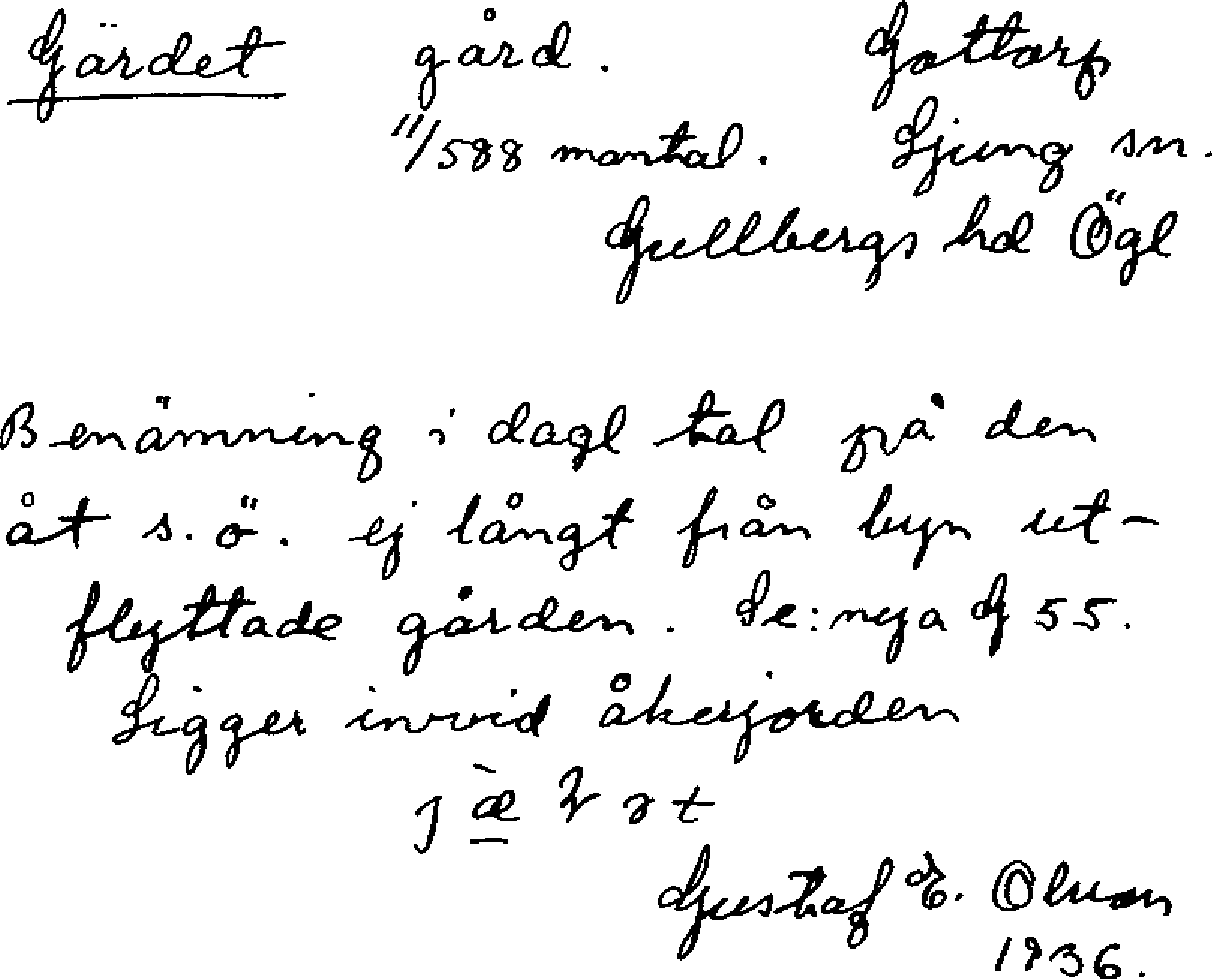 Gärdet gård. Gottorp
11/588 mantal. Ljung sn.
Gullbergs hd Ögl
Benämning i dagl tal på den
åt s.ö. ej långt från byn ut-
flyttade gården. Se: nya G 55.
Ligger invvid åkerjorden
Gustaf E. Olson
1936.